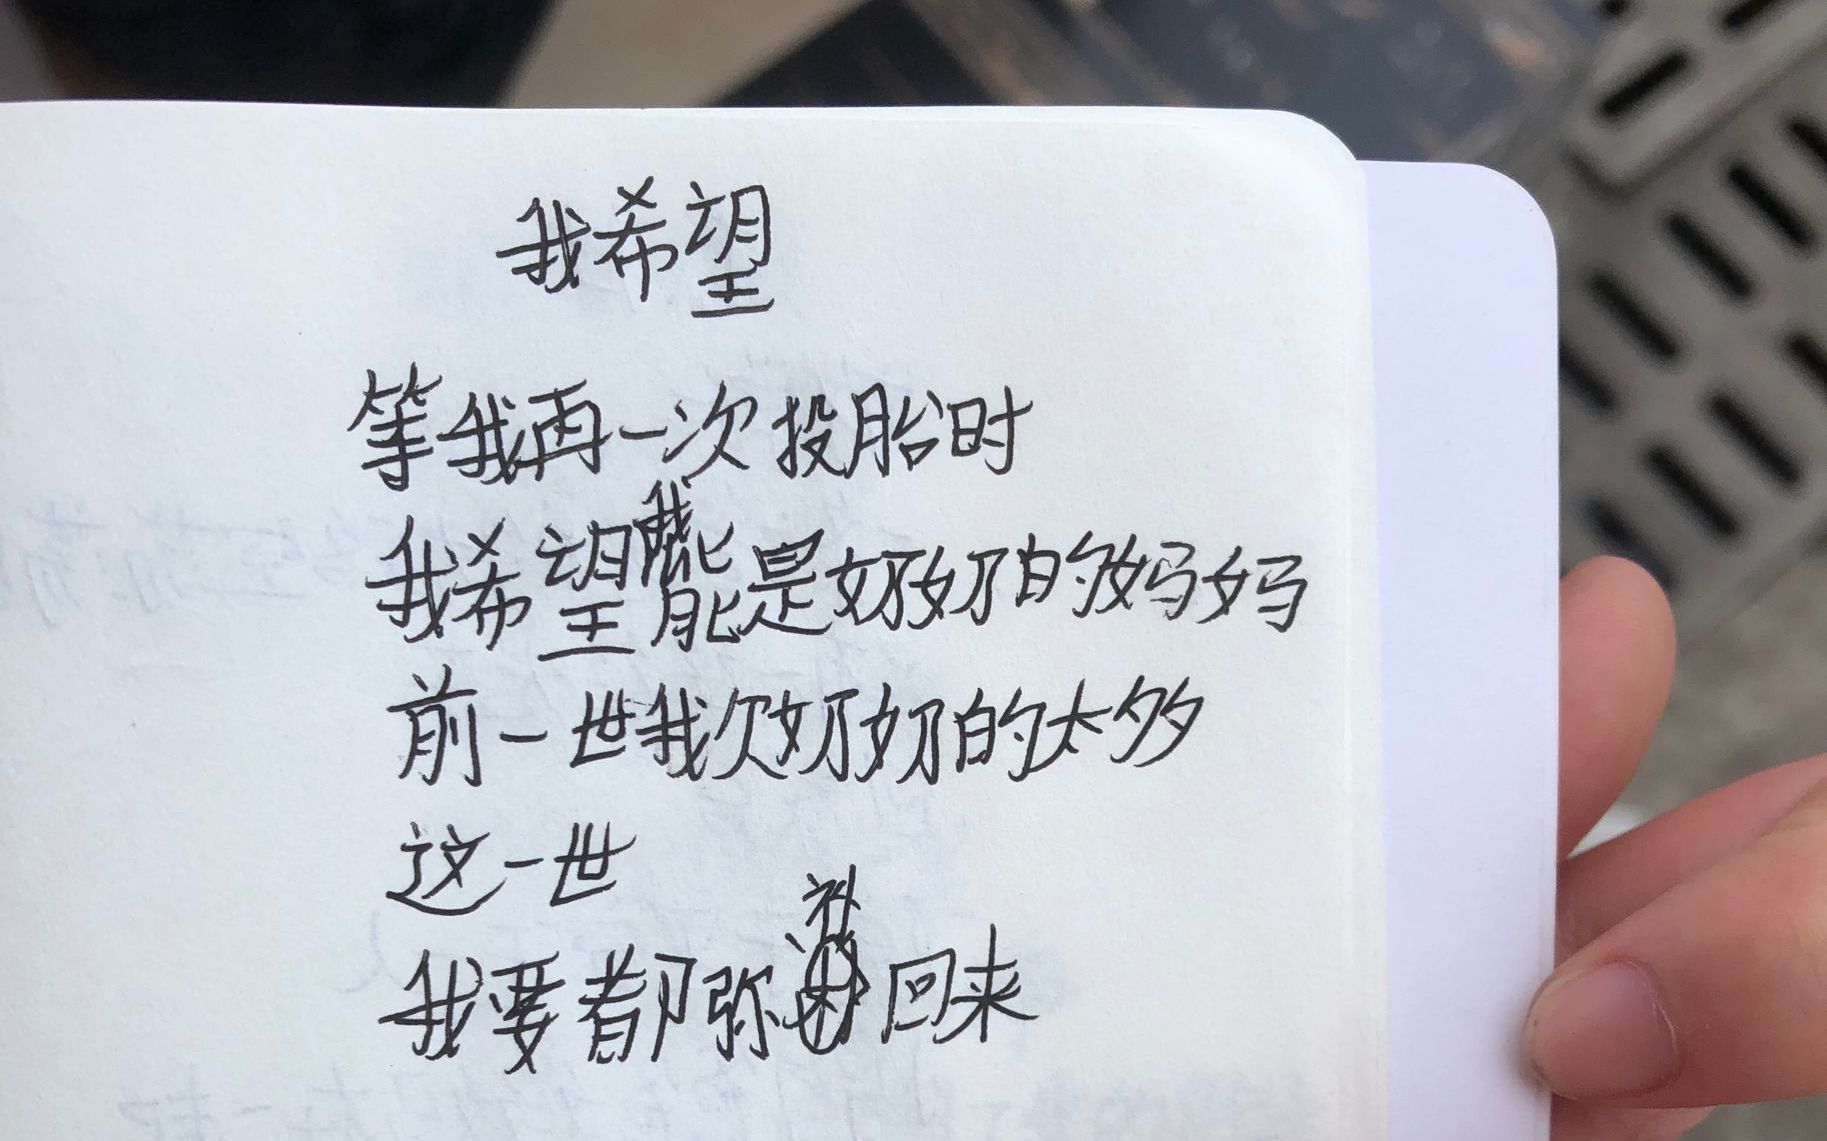 我希望
等我再一次投胎时
我希望我能是奶奶的妈妈
前一世我欠奶奶的太多
这一世
我要都弥补回来